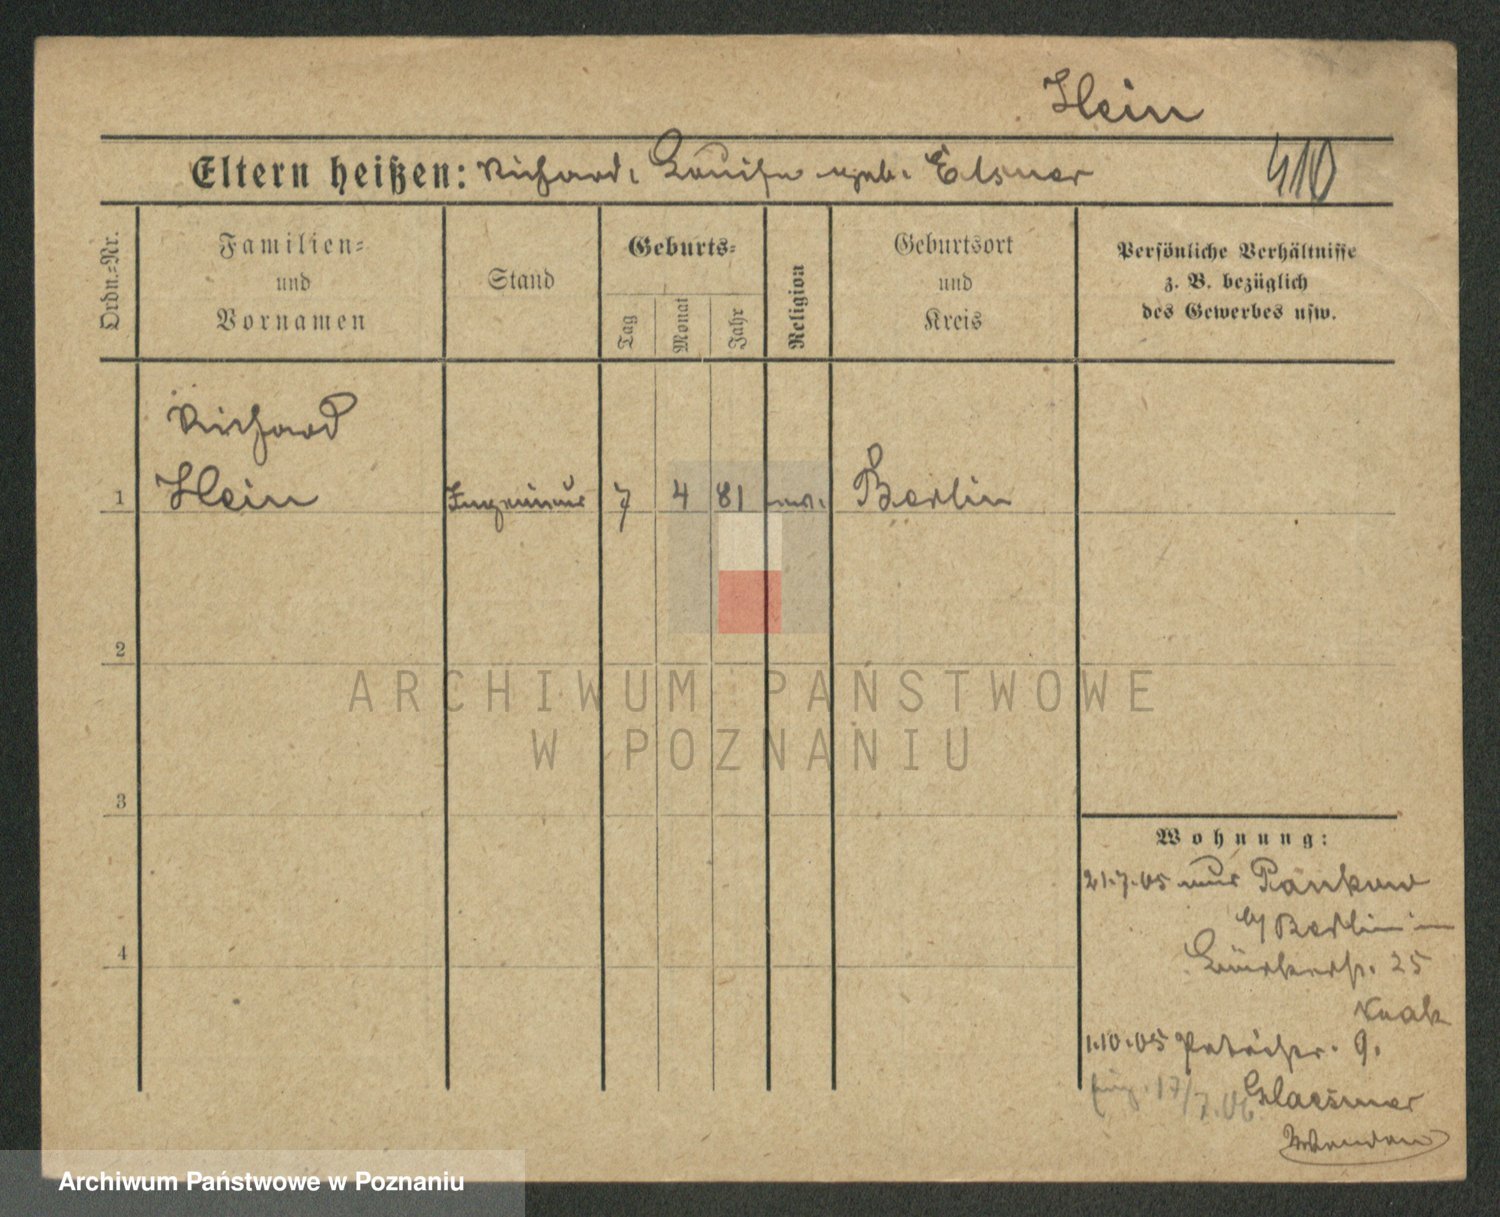 Hein
Eltern heißen: Richard, Louise geb. Elsner
410
Ordn.-Nr.
Familien-
und
Vornamen
Stand
Geburts-
Tag
Monat
Jahr
Religion
Geburtsort
und
Kreis
Persönliche Verhältnisse
z. B. bezüglich
des Gewerbes usw.
Richard
1 Hein Ingenieur 7 4 81 Berlin
2
3
4
Wohnung:
21.7.05 Pankow
b/ Berlin
25
Knak
1.10.05 9.
17/7.06 Glaesmer
Wenden
ARCHIWUM PAŃSTWOWE
W POZNANIU
Archiwum Państwowe w Poznaniu